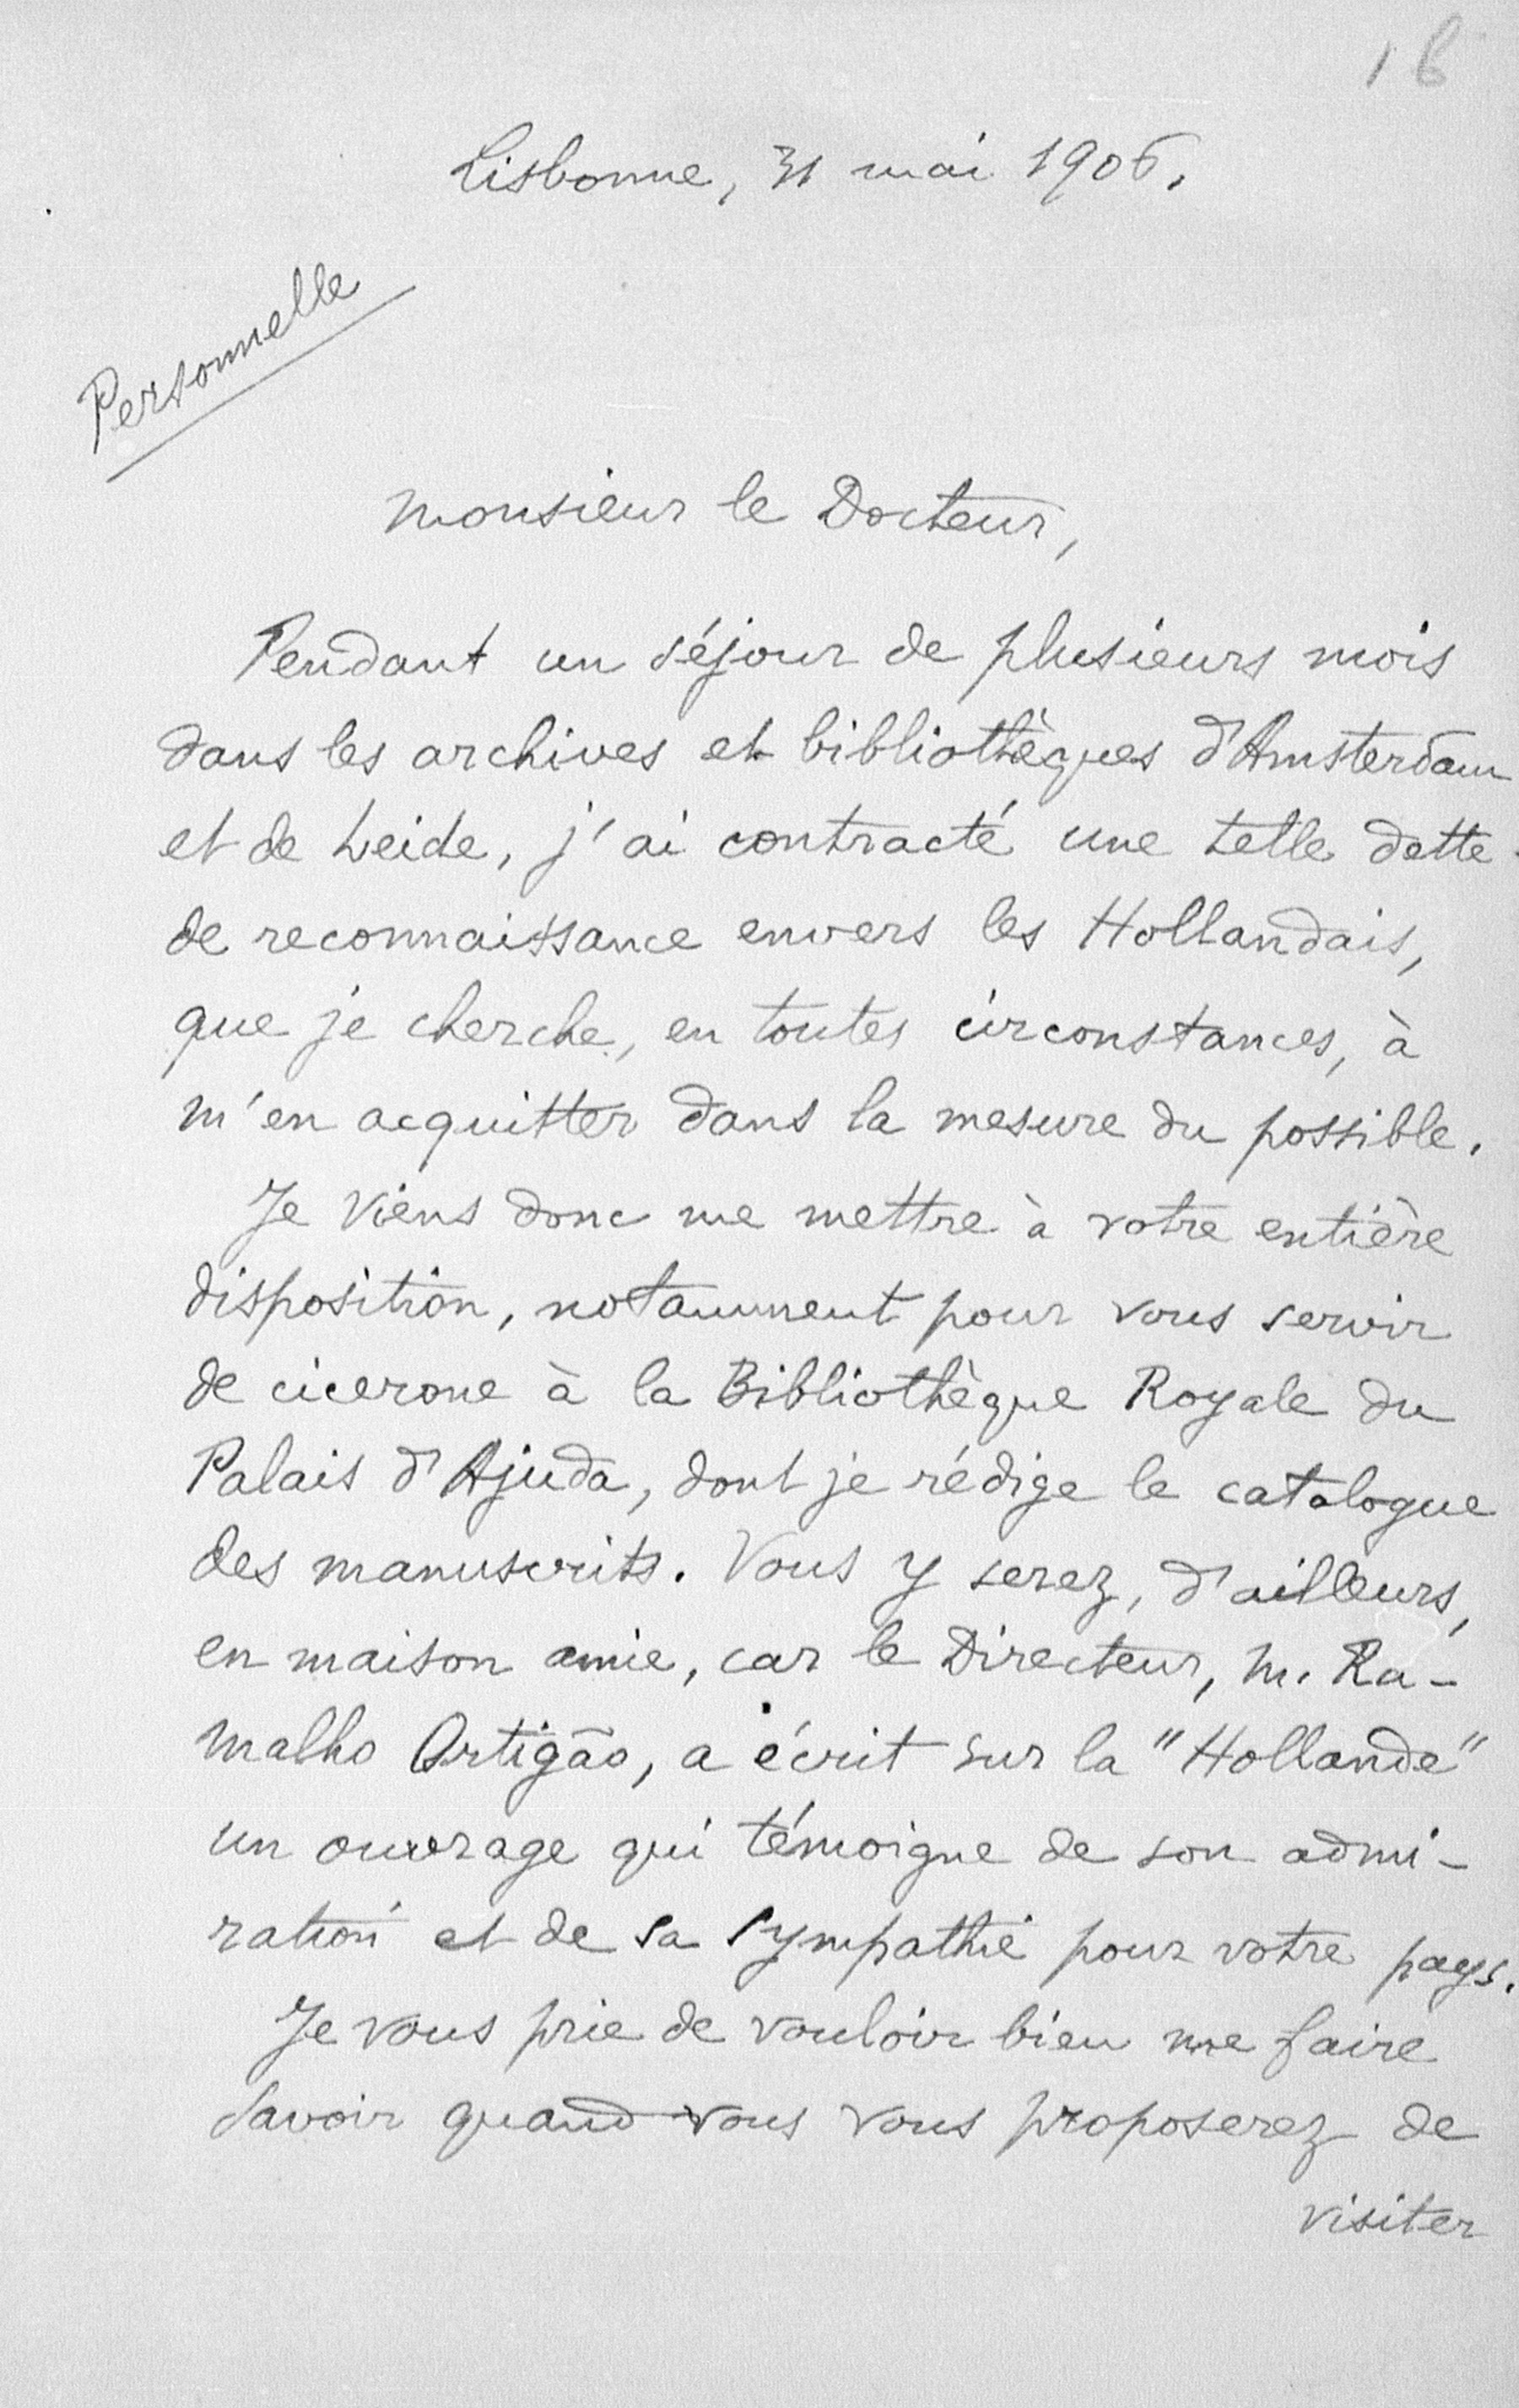 18
Lisbonne, 31 mai 1906.
Personnelle
Monsieur le Docteur,
Pendant un séjour de plusieurs mois
dans les archives et bibliothèques d'Amsterdam
et de Leide, j'ai contracté une telle dette
de reconnaissance envers les Hollandais,
que je cherche, en toutes circonstances, à
m'en acquitter dans la mesure du possible.
Je viens donc me mettre à votre entière
disposition, notamment pour vous servir
de cicerone à la Bibliothèque Royale du
Palais d'Ajuda, dont je rédige le catalogue
des manuscrits. Vous y serez, d'ailleurs,
en maison amie, car le Directeur, M. Ra-
malho Ortigão, a écrit sur la "Hollande"
un ouvrage qui témoigne de son admi-
ration et de sa sympathie pour votre pays.
Je vous prie de vouloir bien me faire
savoir quand vous vous proposerez de
visiter